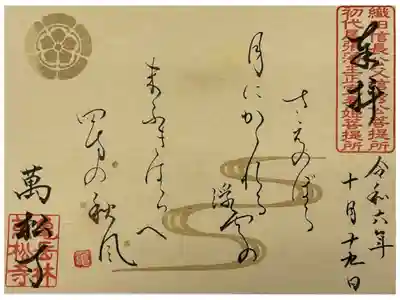 織田信長公父信秀公菩提所
初代尾張藩主正室春姫菩提所
奉拝
令和六年
十月十九日
さえのぼる
月にかかれる
浮雲の
末ふきはらへ
四方の秋風
萬松寺
亀岳林
萬松寺